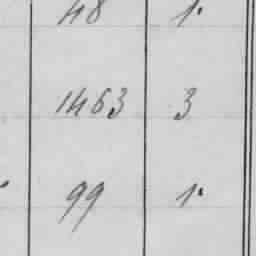 48 1.
1463 3
99 1.